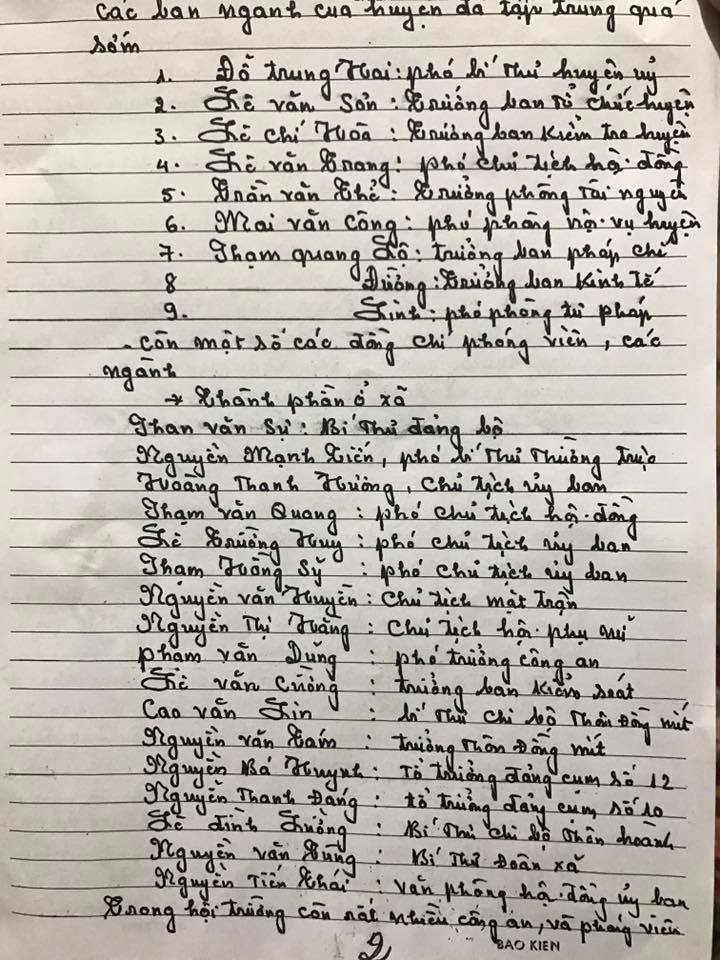 các ban ngành của huyện đã tập trung quá
sớm
1. Đỗ trung Hai : phó bí thư huyện uỷ
2. Lê văn Sơn : Trưởng ban tổ chức huyện
3. Lê chí Hoà : Trưởng ban kiểm tra huyện
4. Lê văn Trang : phó chủ tịch hội đồng
5. Trần văn Thể : Trưởng phòng tài nguyên
6. Mai văn Công : phó phòng nội vụ huyện
7. Phạm quang Lộ : trưởng ban pháp chế
8 Dưỡng : Trưởng ban Kinh tế
9. Lình : phó phòng tư pháp
- còn một số các đồng chí phóng viên, các
ngành
→ Thành phần ở xã
Phan văn Sự : Bí thư đảng bộ
Nguyễn Mạnh Tiến, phó bí thư thường trực
Hoàng Thanh Hường, Chủ tịch uỷ ban
Phạm văn Quang : phó chủ tịch hội đồng
Lê Trường Huy : phó chủ tịch uỷ ban
Phạm Hoàng Sỹ : phó chủ tịch uỷ ban
Nguyễn văn Huyền : Chủ tịch mặt trận
Nguyễn Thị Hoàng : Chủ tịch hội phụ nữ
phạm văn Dũng : phó trưởng công an
Lê văn Cường : trưởng ban kiểm soát
Cao văn Lin : bí thư chi bộ thôn Đồng mít
Nguyễn văn Tám : trưởng thôn Đồng mít
Nguyễn Bá Huynh : Tổ trưởng đảng cụm số 12
Nguyễn Thanh Đáng : tổ trưởng đảng cụm số 10
Lê đình Lưởng : Bí thư chi bộ thôn hoành
Nguyễn văn Tùng : Bí thư Đoàn xã
Nguyễn Tiến Thái : văn phòng hội đồng uỷ ban
Trong hội trường còn rất nhiều công an, và phóng viên
2
BAO KIEN